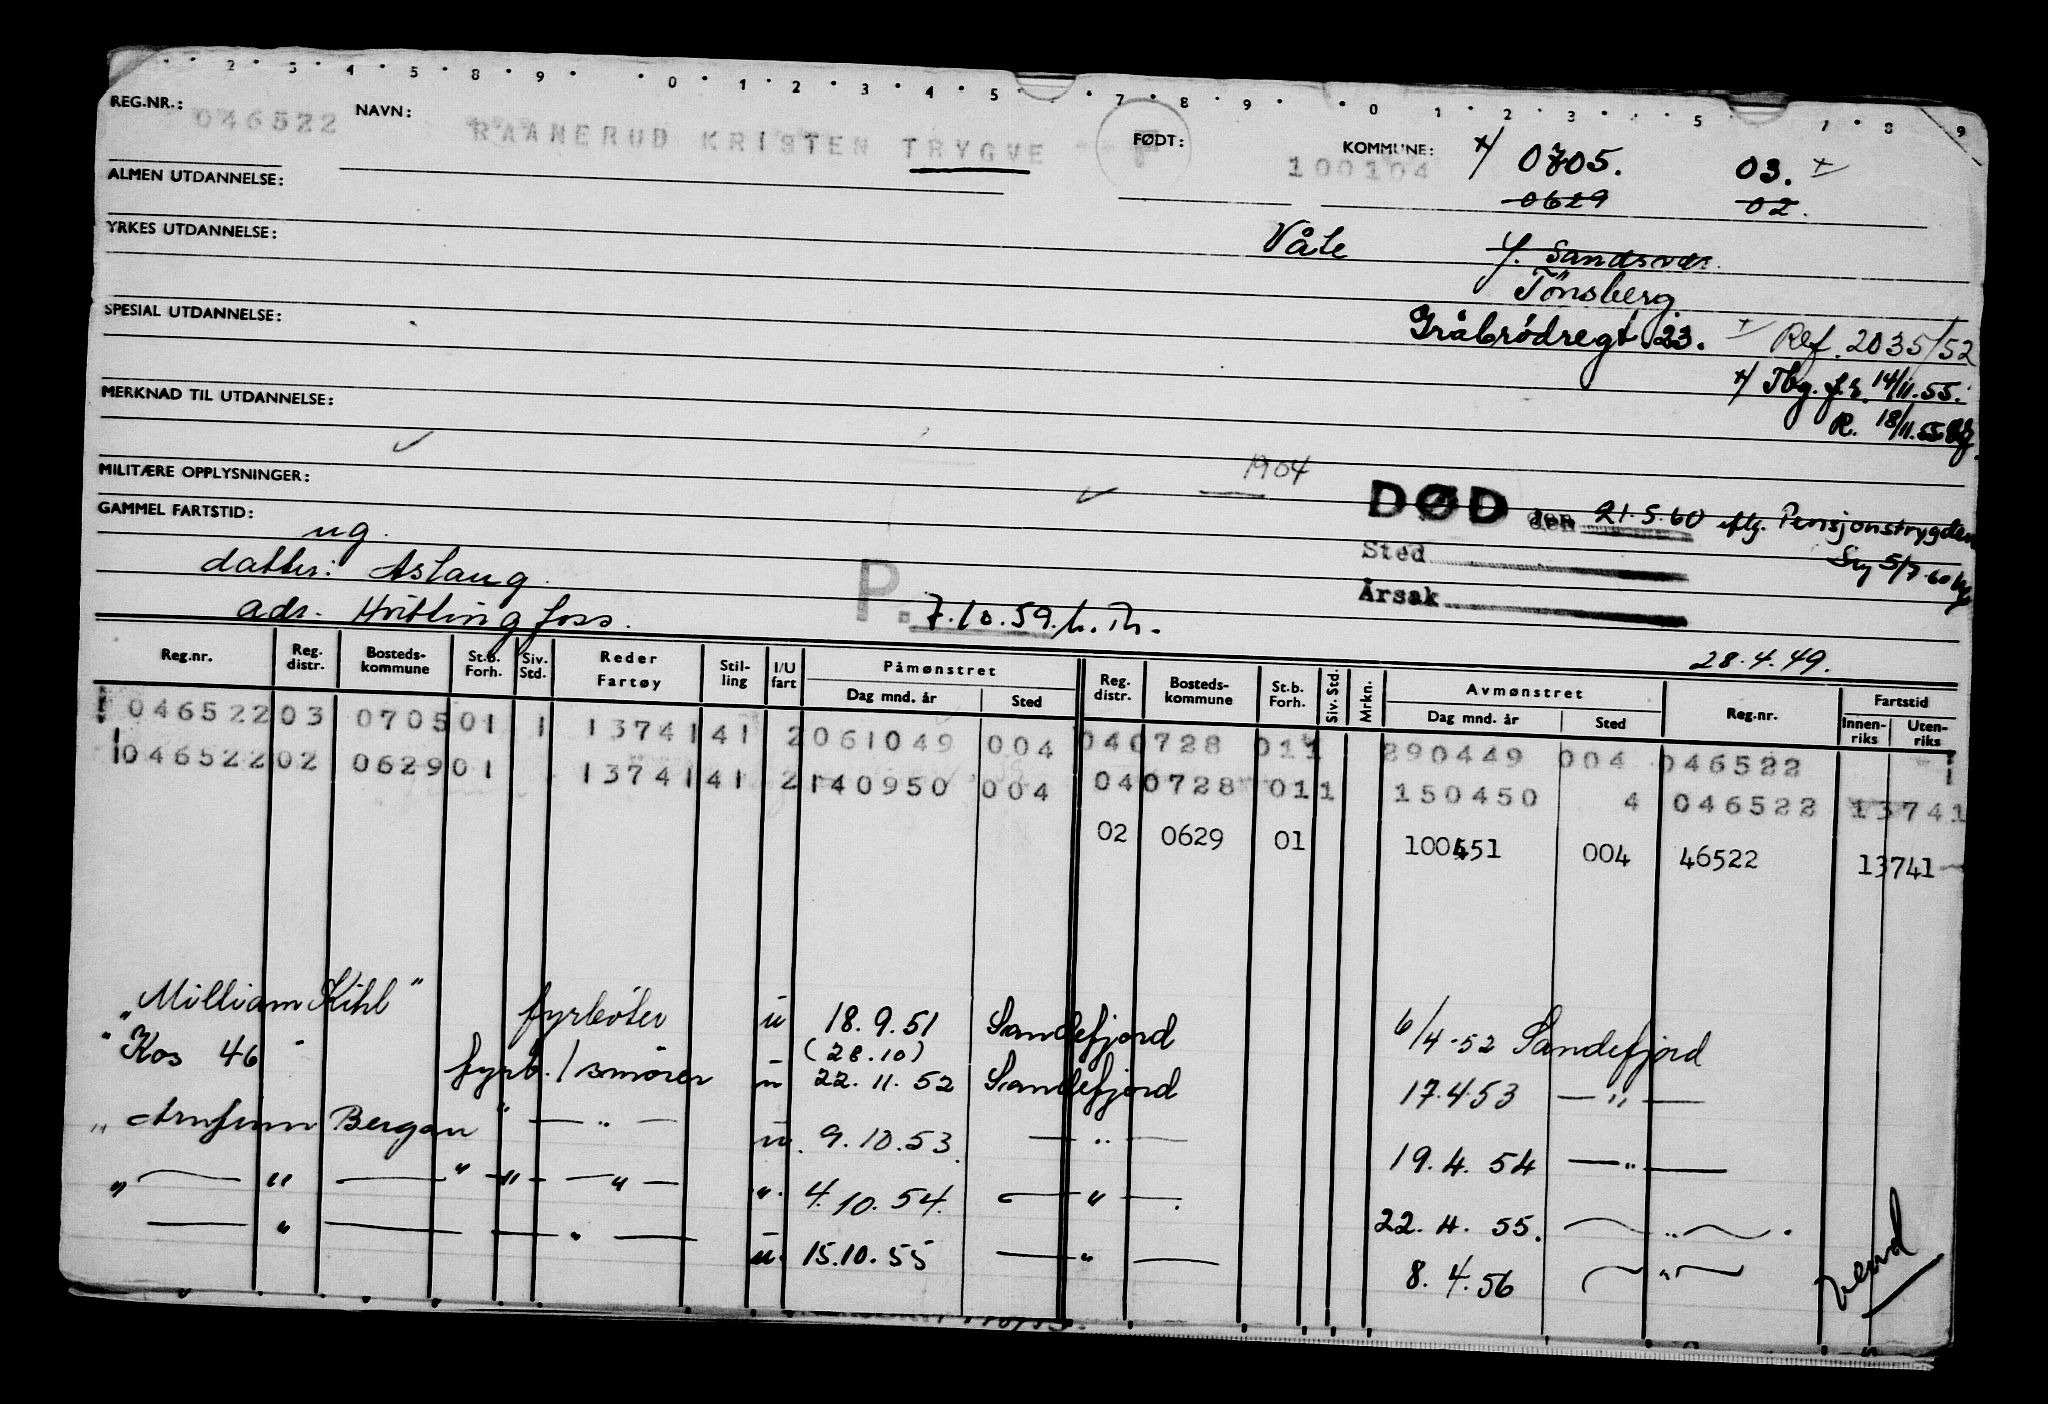 2 3 4 5 8 9 0 1 2 3 4 5 7 8 9 0 1 2 3 5 7 8 9
REG.NR.: 046522 NAVN: RAANERUD KRISTEN TRYGVE F FØDT: 100104 KOMMUNE: x/ 0705. 03. x
0629 02.
ALMEN UTDANNELSE:
YRKES UTDANNELSE: Våle Y. Sandsvær.
Tönsberg
SPESIAL UTDANNELSE: Gråbrødregt 23. Ref. 2035/52
MERKNAD TIL UTDANNELSE: x/ Tbg. f.r. 14/11.55.
R. 18/11.55
MILITÆRE OPPLYSNINGER: 1904
GAMMEL FARTSTID: DØD den 21.5.60 eftg. Pensjonstrygden
ug. Sted 5/7.60
datter: Aslaug. P. Årsak
adr. Hvittingfoss. 7.10.59.
28.4.49.
Reg.nr. Reg. distr. Bosteds-kommune St.b. Forh. Siv. Std. Reder Fartøy Stil-ling I/U fart Påmønstret Dag mnd. år Sted Reg. distr. Bosteds-kommune St.b. Forh. Siv. Std. Mrkn. Avmønstret Dag mnd. år Sted Reg.nr. Fartstid Innen-riks Uten-riks
046522 03 0705 01 1 13741 41 2 061049 004 04 0728 01 1 290449 004 046522
046522 02 0629 01 13741 41 2 140950 004 04 0728 01 1 150450 4 046522 13741
02 0629 01 100451 004 46522 13741
"William Kihl" fyrbøter u 18.9.51 Sandefjord 6/4-52 Sandefjord
(28.10)
"Kos 46" fyrb./smører u 22.11.52 Sandefjord 17.4.53 — " —
"Arnfinn Bergan" — " — u. 9.10.53. — " — 19.4.54 — " —
" — " — " — " — " — ". 4.10.54. — " — . 22.4.55. — " — .
— " — — " — u. 15.10.55 — " — 8.4.56 — " —